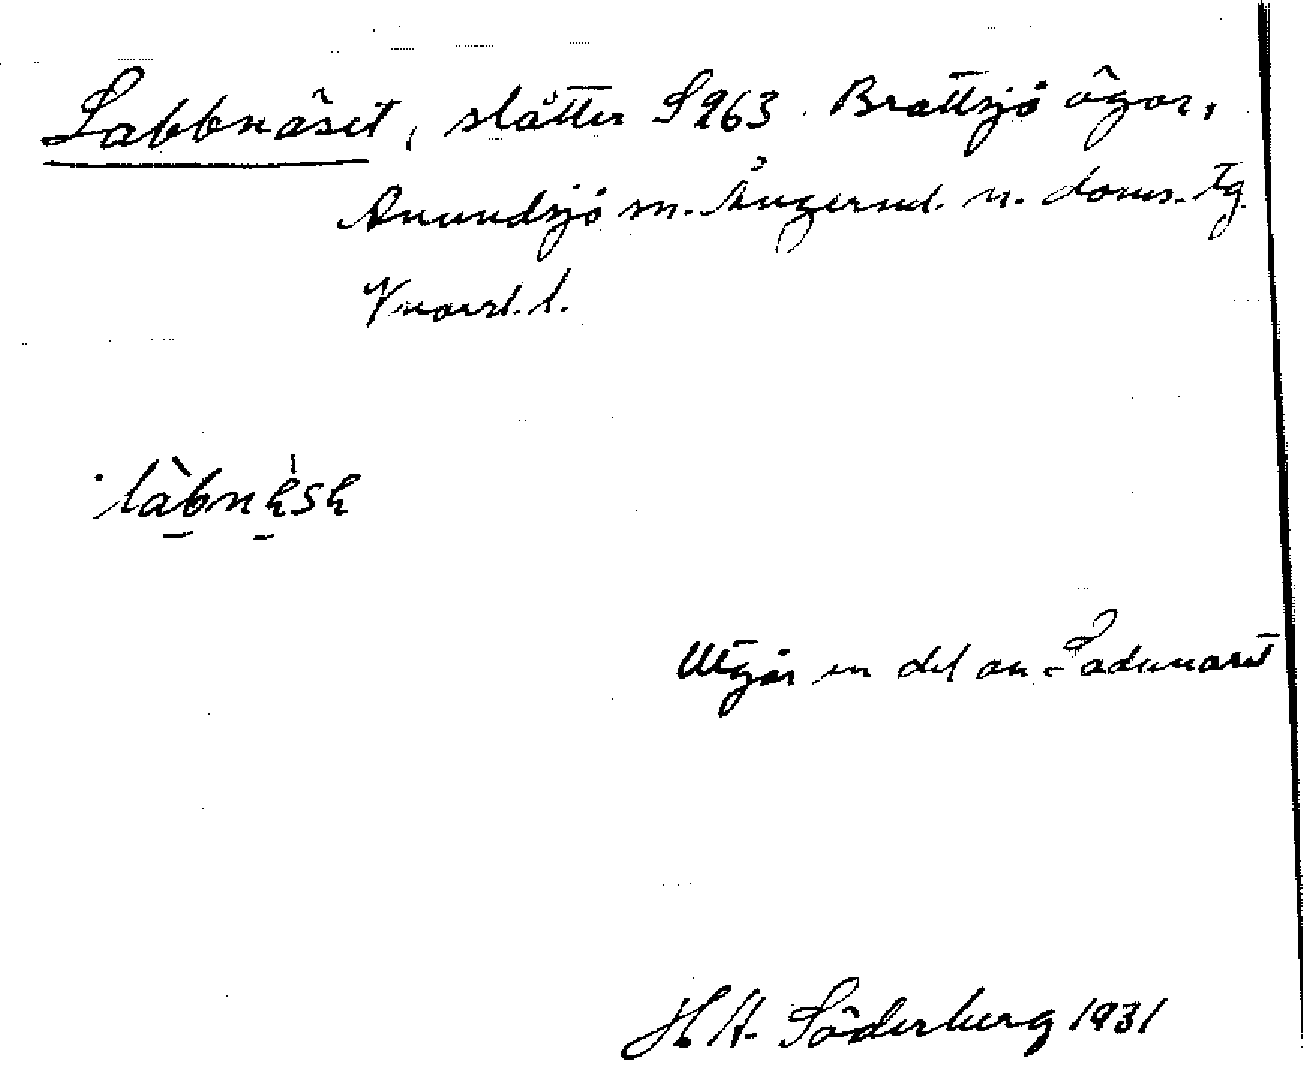 Labbnäset, slåtter S 963. Brattsjö ägor,
Anundsjö sn. Ångerml. n. doms. tg
Vnorrl. l.
làbnęsę
Utgör en del av Ladunäset
H. A. Söderberg 1931